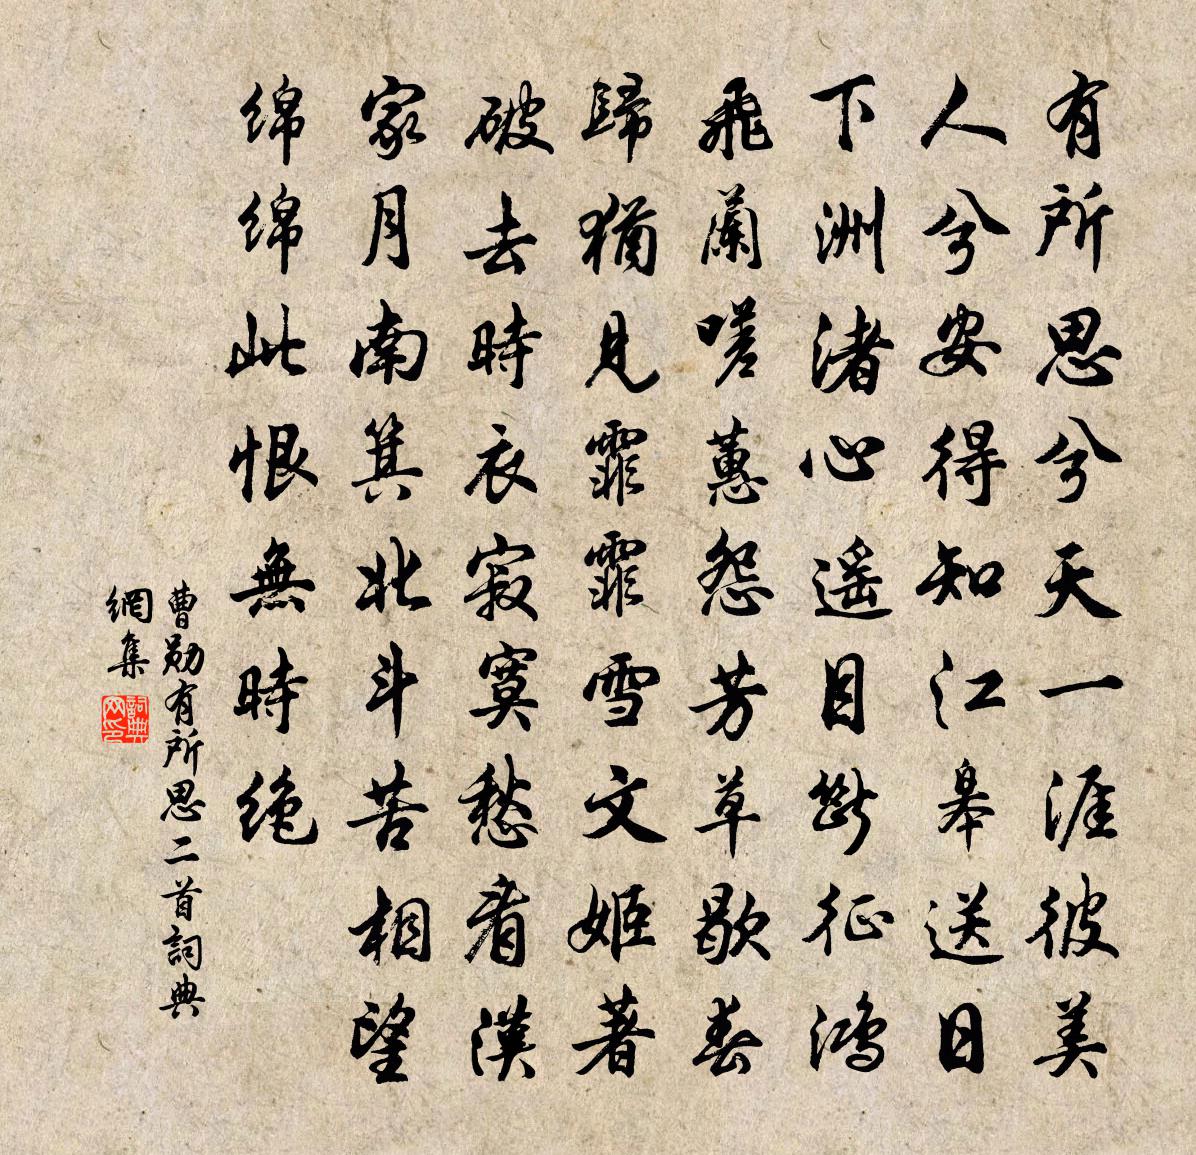 有所思兮天一涯彼美
人兮安得知江皋送日
下洲渚心遥目斷征鴻
飛蘭嗟蕙怨芳草歇春
歸猶見霏霏雪文姬著
破去時衣寂寞愁看漢
家月南箕北斗苦相望
绵绵此恨無時绝
曹勛有所思二首詞典
網集
詞典
网印